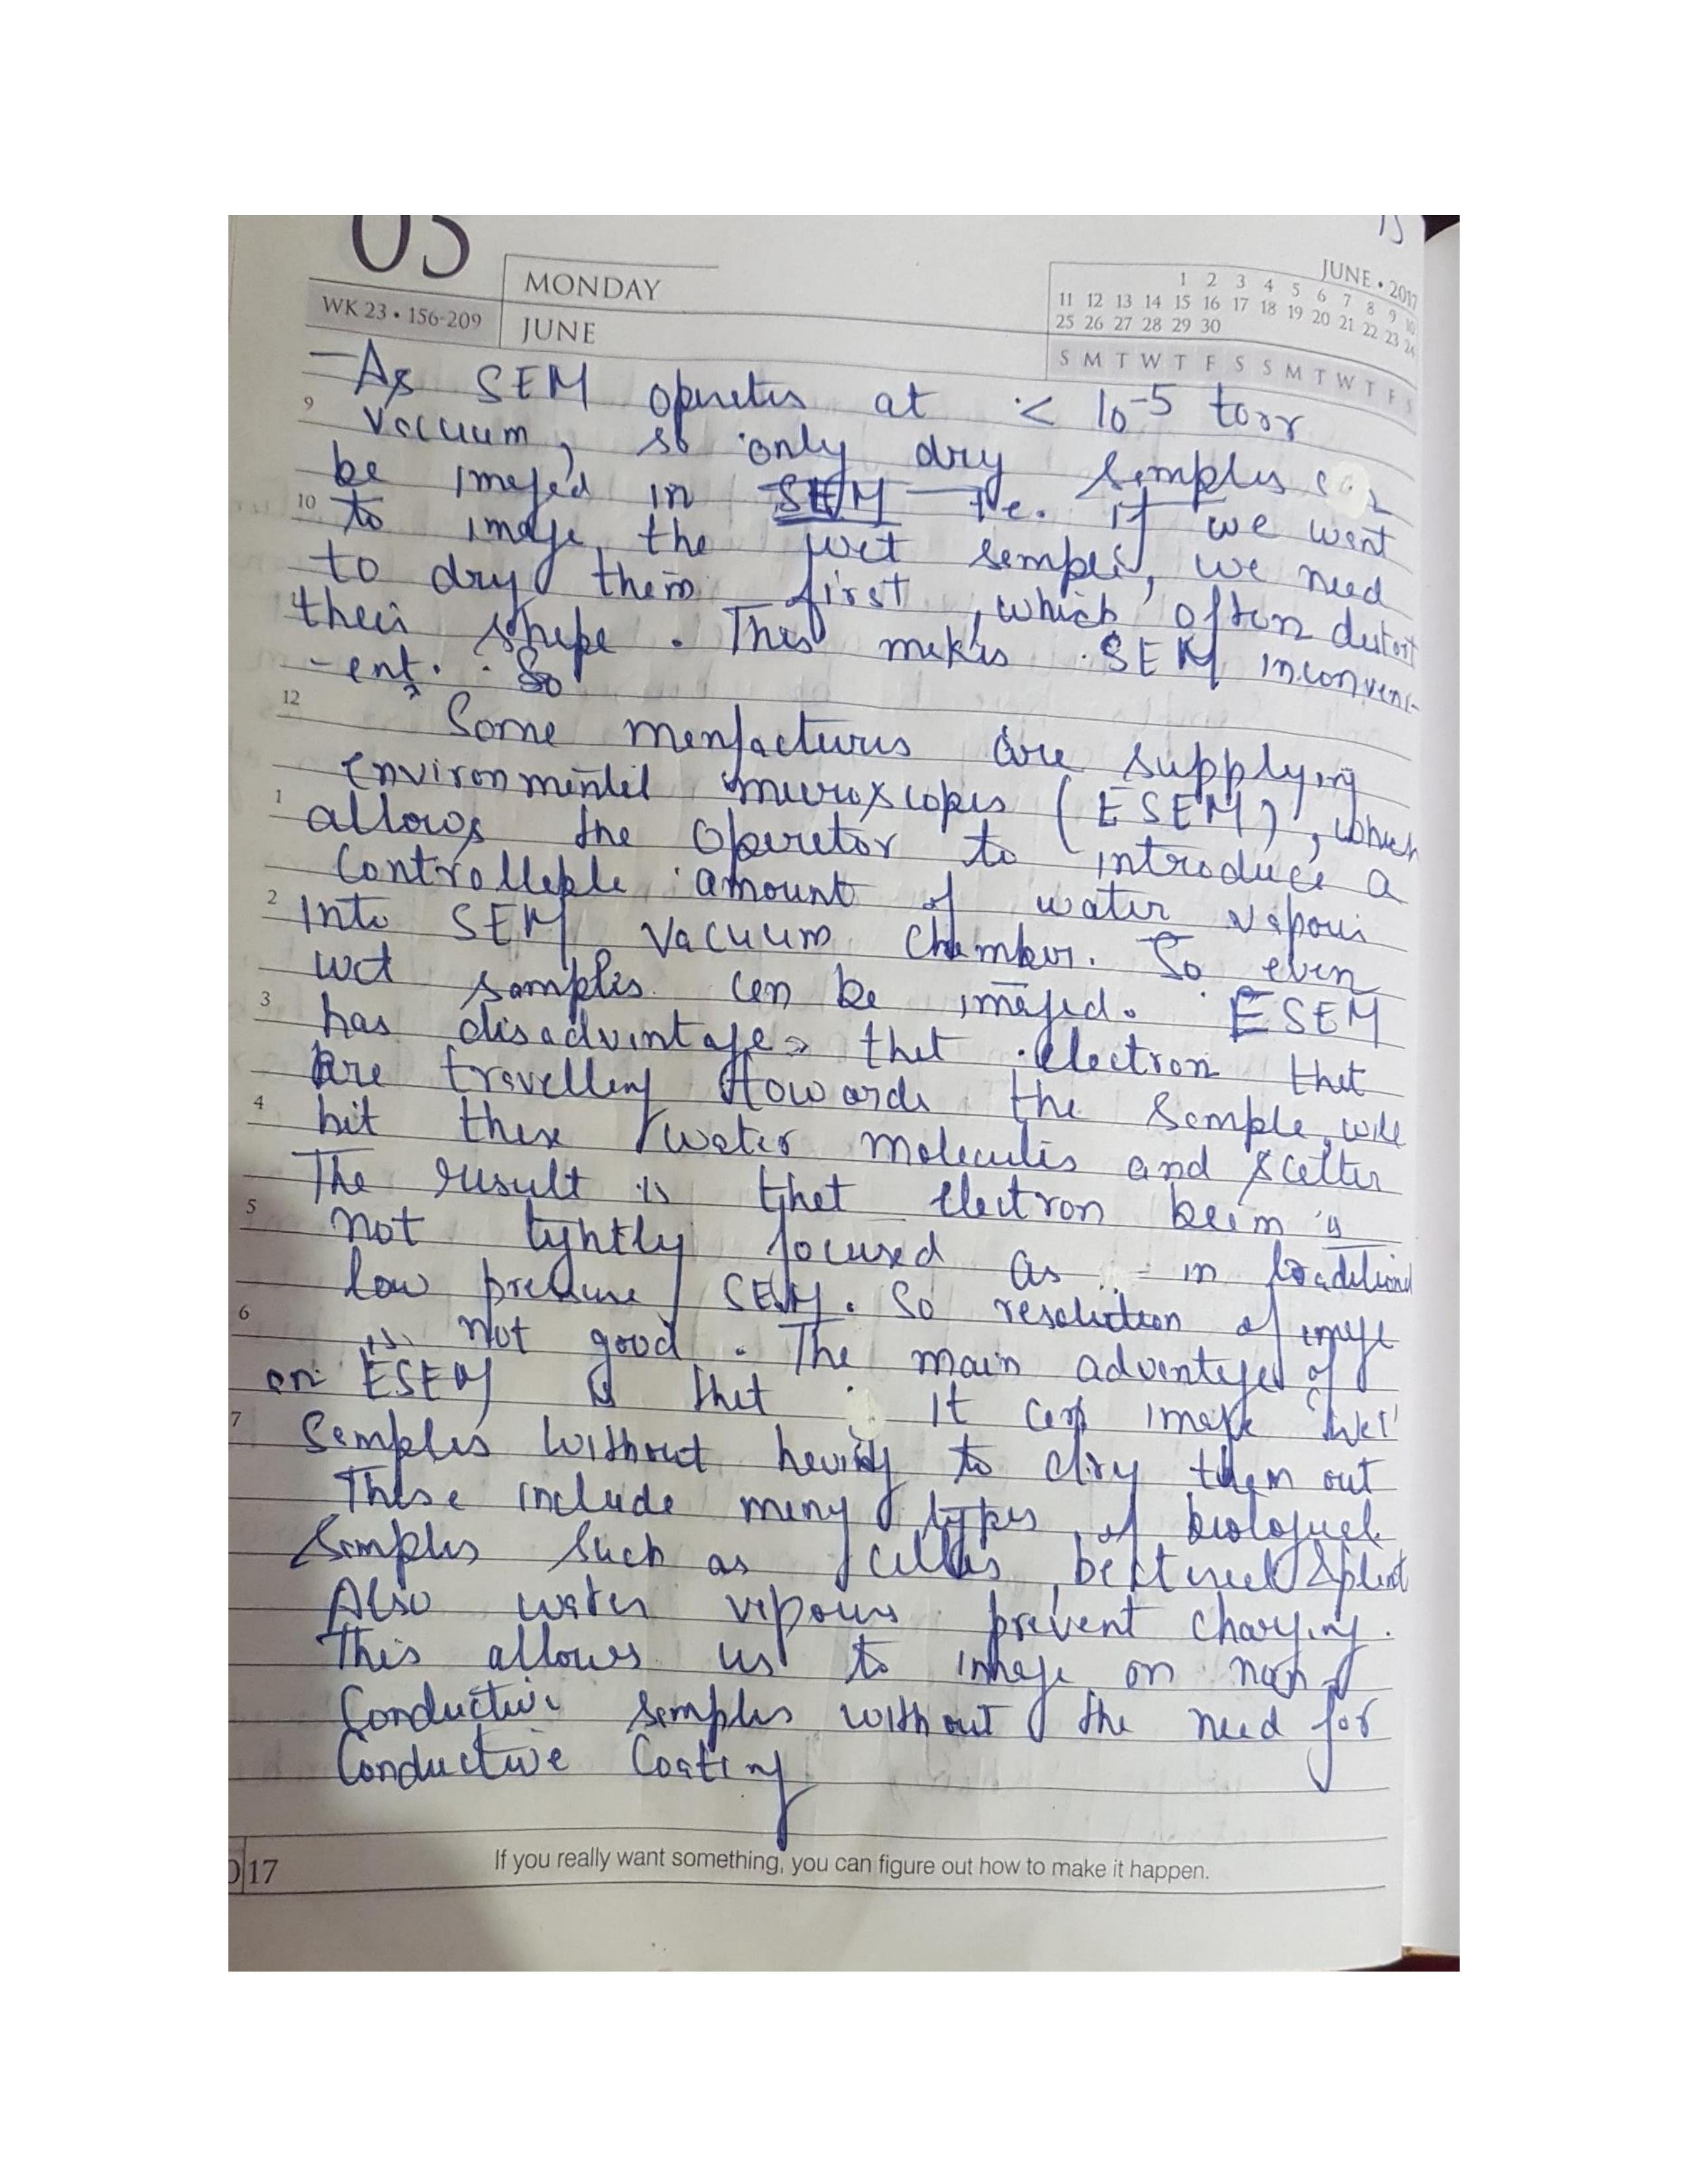 05
15
MONDAY
JUNE
WK 23 • 156-209
JUNE • 2017
1 2 3 4 5 6 7 8 9 10
11 12 13 14 15 16 17 18 19 20 21 22 23 24
25 26 27 28 29 30
S M T W T F S S M T W T F S
— As SEM operates at < 10-5 torr
9
vacuum, so only dry samples can
be imaged in SEM — i.e. if we want
10
to image the wet samples, we need
to dry them first, which often distort
their shape. This makes SEM inconveni-
-ent. So
12
Some menfacturers are supplying
environmental microscopes (ESEM), which
1
allows the operator to introduce a
controllable amount of water vapour
2
into SEM vacuum chamber. So even
wet samples can be imaged. ESEM
3
has disadvantage that electron that
are travelling towards the sample, will
4
hit these water molecules and scatter
The result is that electron beam is
5
not tightly focused as in traditional
low pressure SEM. So resolution of image
6
is not good. The main advantage of
an ESEM is that it can image 'wet'
7
samples without having to dry them out
These include many types of biological
samples such as cells, & plant
Also water vapours prevent charging.
This allows us to image on non-
conductive samples without the need for
conductive coating
17
If you really want something, you can figure out how to make it happen.